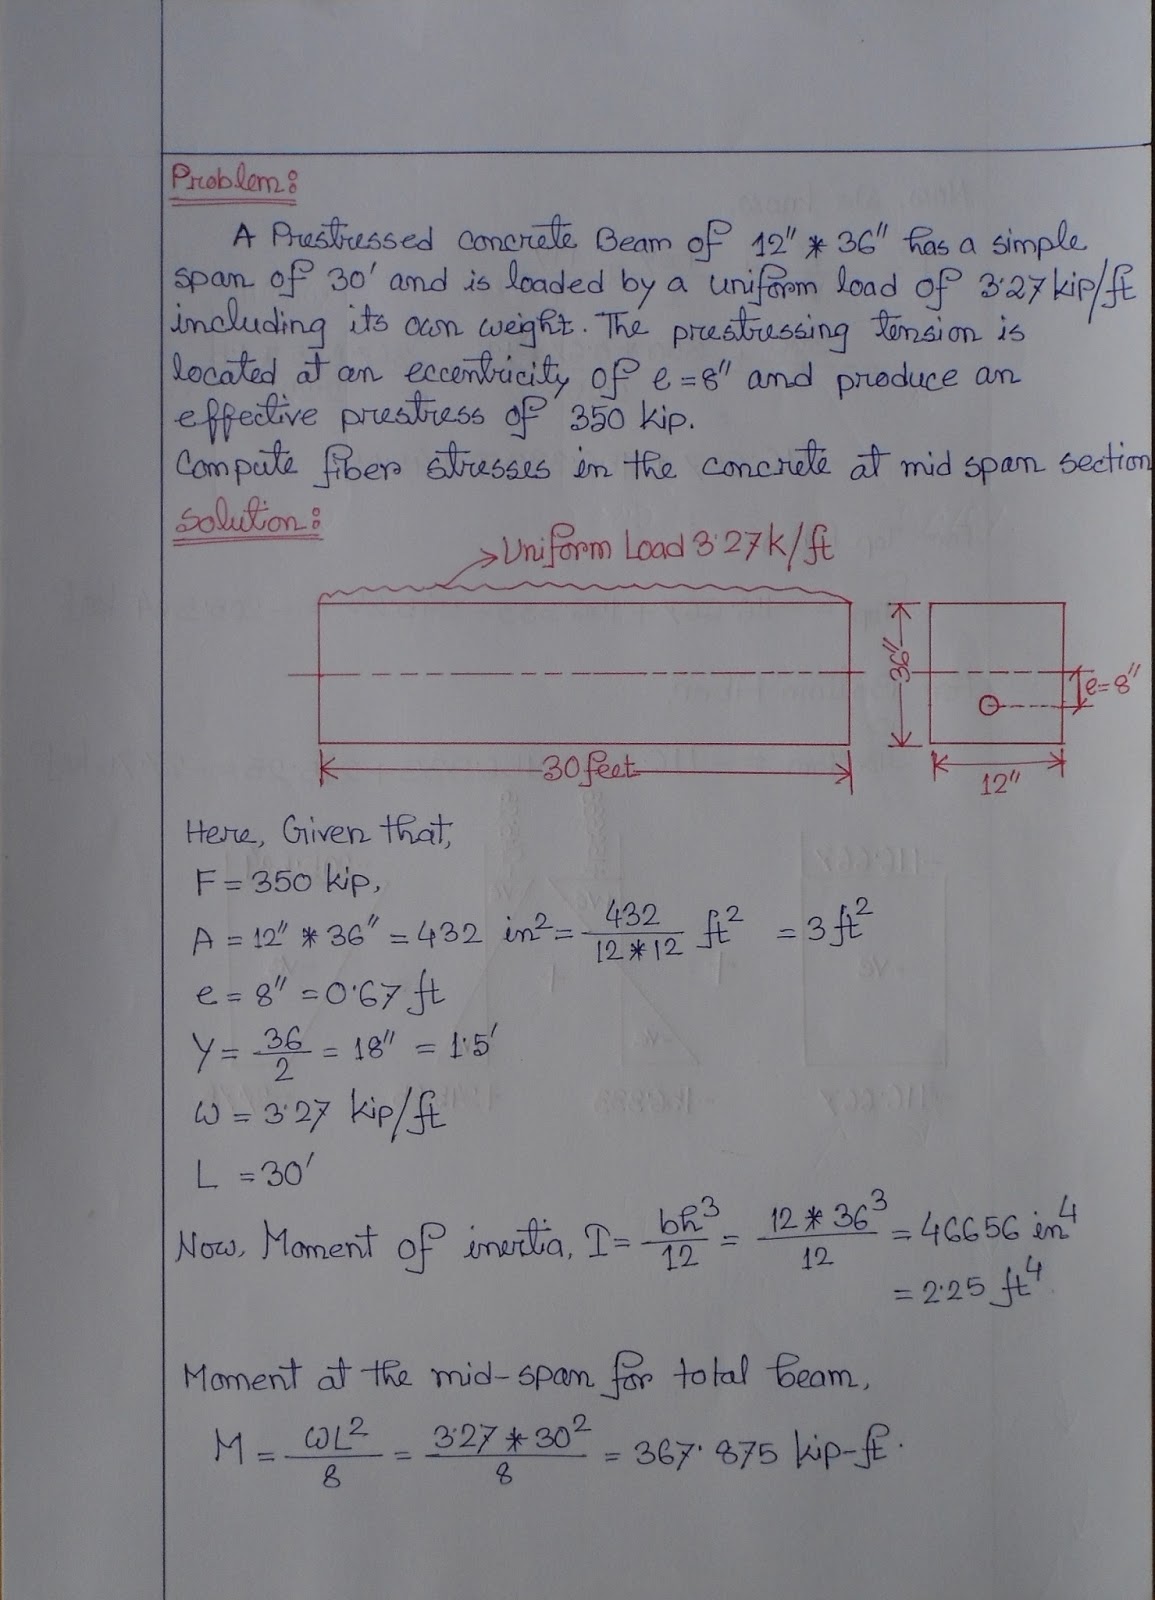 Problem:
A Prestressed concrete Beam of 12" * 36" has a simple
span of 30' and is loaded by a uniform load of 3·27 kip/ft
including its own weight. The prestressing tension is
located at an eccentricity of e = 8" and produce an
effective prestress of 350 kip.
Compute fiber stresses in the concrete at mid span section
Solution:
Uniform Load 3·27 k/ft
36"
e = 8"
30 feet
12"
Here, Given that,
F = 350 kip,
A = 12" * 36" = 432 in² = 432/(12*12) ft² = 3 ft²
e = 8" = 0·67 ft
Y = 36/2 = 18" = 1·5'
ω = 3·27 kip/ft
L = 30'
Now, Moment of inertia, I = bh³/12 = 12 * 36³/12 = 46656 in⁴
= 2·25 ft⁴
Moment at the mid-span for total beam,
M = ωL²/8 = 3·27 * 30²/8 = 367·875 kip-ft.